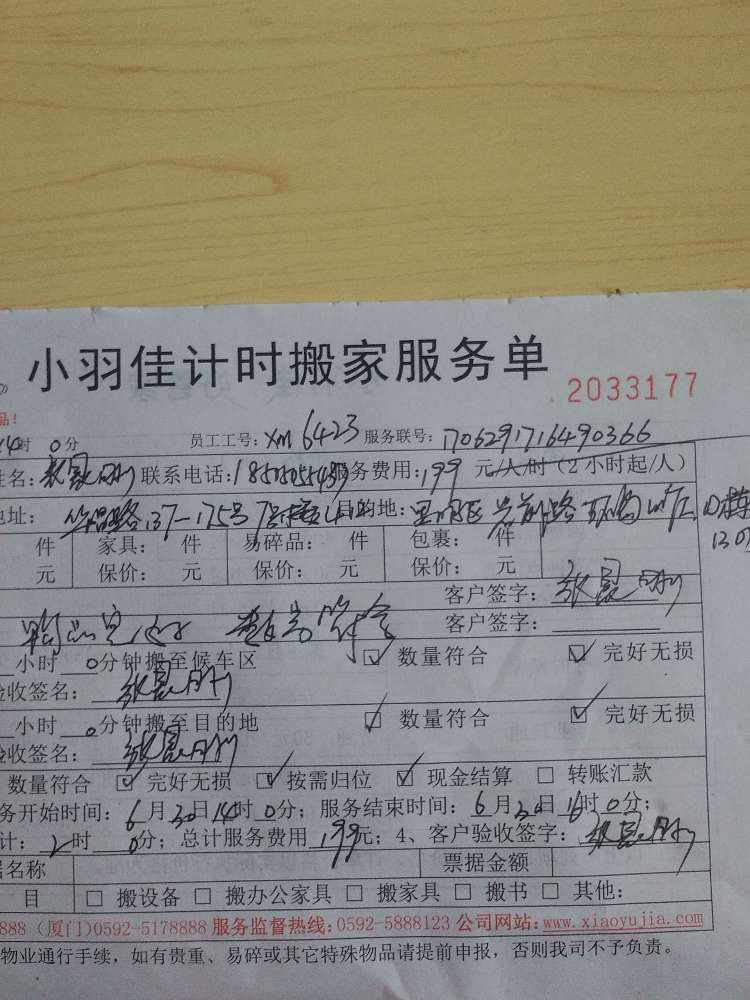 小羽佳计时搬家服务单
2033177
品!
14时 0分 员工工号: xm 6423 服务联号: 170629171649 0366
姓名: 联系电话: 服务费用: 199 元/人/时(2小时起/人)
地址: 137-175号 目的地:
件 家具: 件 易碎品: 件 包裹: 件
元 保价: 元 保价: 元 保价: 元
客户签字:
物品完好 数量符合 客户签字:
小时 0分钟搬至候车区 ☑ 数量符合 ☑ 完好无损
验收签名:
小时 0分钟搬至目的地 ☑ 数量符合 ☑ 完好无损
验收签名:
数量符合 ☑ 完好无损 ☑ 按需归位 ☑ 现金结算 □ 转账汇款
务开始时间: 6月30日14时0分; 服务结束时间: 6月30日16时0分;
计: 2时 0分; 总计服务费用 199元; 4、客户验收签字:
据名称 票据金额
目 □ 搬设备 □ 搬办公家具 □ 搬家具 □ 搬书 □ 其他:
888(厦门)0592-5178888 服务监督热线:0592-5888123 公司网站:www.xiaoyujia.com
物业通行手续,如有贵重、易碎或其它特殊物品请提前申报,否则我司不予负责。